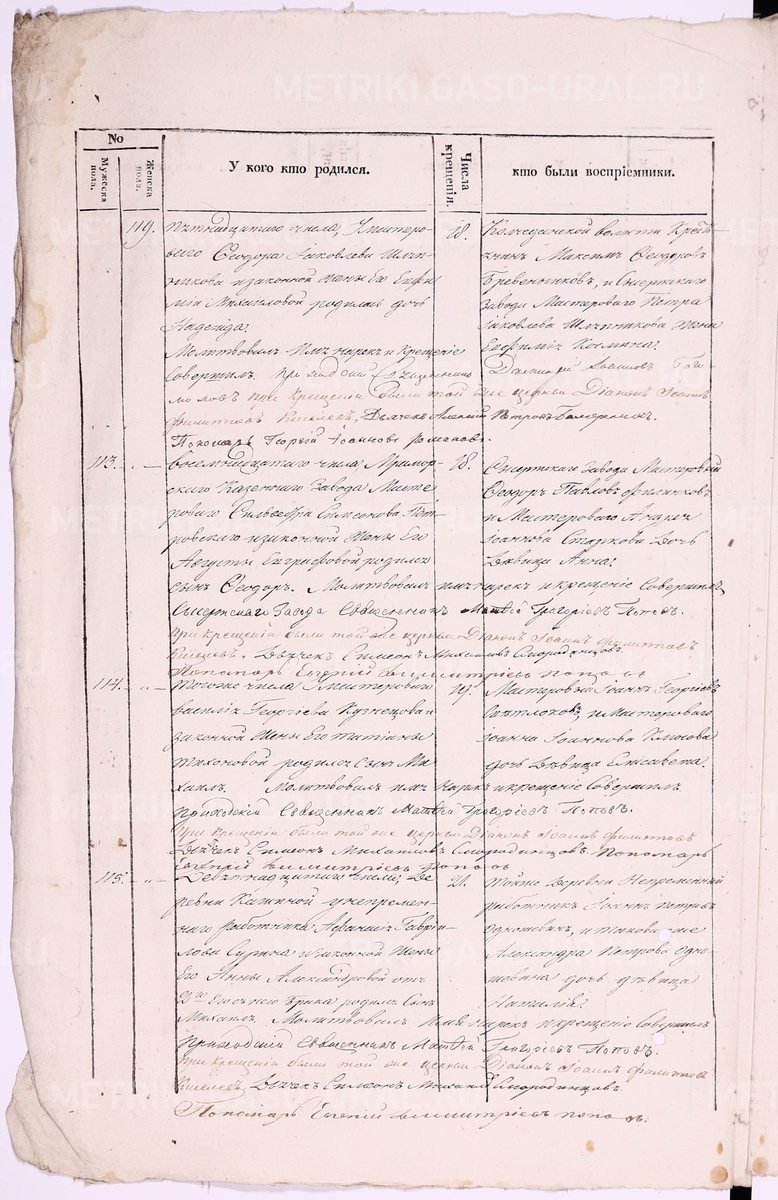 METRIKI.GASO-URAL.RU
No
Мужеска пола.
Женска пола.
У кого кто родился.
Числа крещенія.
кто были воспріемники.
119.
пятнадцатаго числа, У мастеро-
ваго Ѳеодора Яковлева
и законной жены Его Евфи-
міи Михайловой родилась дочь
Надежда.
Молитвовалъ Имя нарекъ и Крещеніе
Совершилъ
при Крещеніи были той же церкви Діаконъ Іоаннъ
Филитовъ Киселевъ, Дьячекъ Алексѣй Петровъ
Пономарь Георгій Іоанновъ Романовъ.
18.
Колчеданской волости Кресть-
янинъ Максимъ Ѳеодоровъ
Бревенниковъ, и Сысертскаго
Завода Мастероваго Петра
Яковлева жена
Евфимія Космина.
113.
восемнадцатаго числа
скаго Казеннаго Завода Масте
роваго Сильвестра Симеонова Пет-
ровскаго и законной жены Его
Августы Евграфовой родился
сынъ Ѳеодоръ. Молитвовалъ имя нарекъ и крещеніе Совершилъ
Сысертскаго Завода Священникъ Матвей Григоріевъ Поповъ.
при крещеніи были той же церкви Діаконъ Іоаннъ Филитовъ
Киселевъ, Дьячекъ Симеонъ Михаиловъ Смородинцовъ
Пономарь Евгеній Димитріевъ Поповъ
18.
Сысертскаго Завода Мастеровый
Ѳеодоръ Павловъ
и Мастероваго Андрея
Іоаннова Старкова Дочь
Дѣвица Анна.
114.
Тогоже числа У мастероваго
Василія Георгіева Кузнецова и
законной жены Его Татіаны
Тихоновой родился Сынъ Ми-
хаилъ. Молитвовалъ имя Нарекъ и крещеніе Совершилъ
приходскій Священникъ Матвей Григорієвъ Поповъ.
При крещеніи были той же церкви Діаконъ Іоаннъ Филитовъ
Дьячекъ Симеонъ Михаиловъ Смородинцовъ Пономарь
Евгеній Димитріевъ Поповъ
19.
Мастеровый Іоаннъ Георгіевъ
и Мастероваго
Іоанна Іоаннова
дочь Дѣвица Елисавета.
115.
Девятнадцатаго числа, Де-
ревни Кашиной у непремен-
наго работника Аѳанасія Гаврі-
лова и законной жены
Его Анны Александровой отъ
родился Сынъ
Михаилъ. Молитвовалъ Имя Нарекъ и крещеніе Совершилъ
Приходскій Священникъ Матвей Григорієвъ Поповъ.
при крещеніи были той же церкви Діаконъ Іоаннъ Филитовъ
Киселевъ, Дьячекъ Симеонъ Михаиловъ Смородинцовъ.
Пономарь Евгеній Димитріевъ Поповъ.
21.
Тойже Деревни Непременный
работникъ Іоаннъ Петровъ
и таковаго же
Александра Петрова
дочь дѣвица
Наталія.